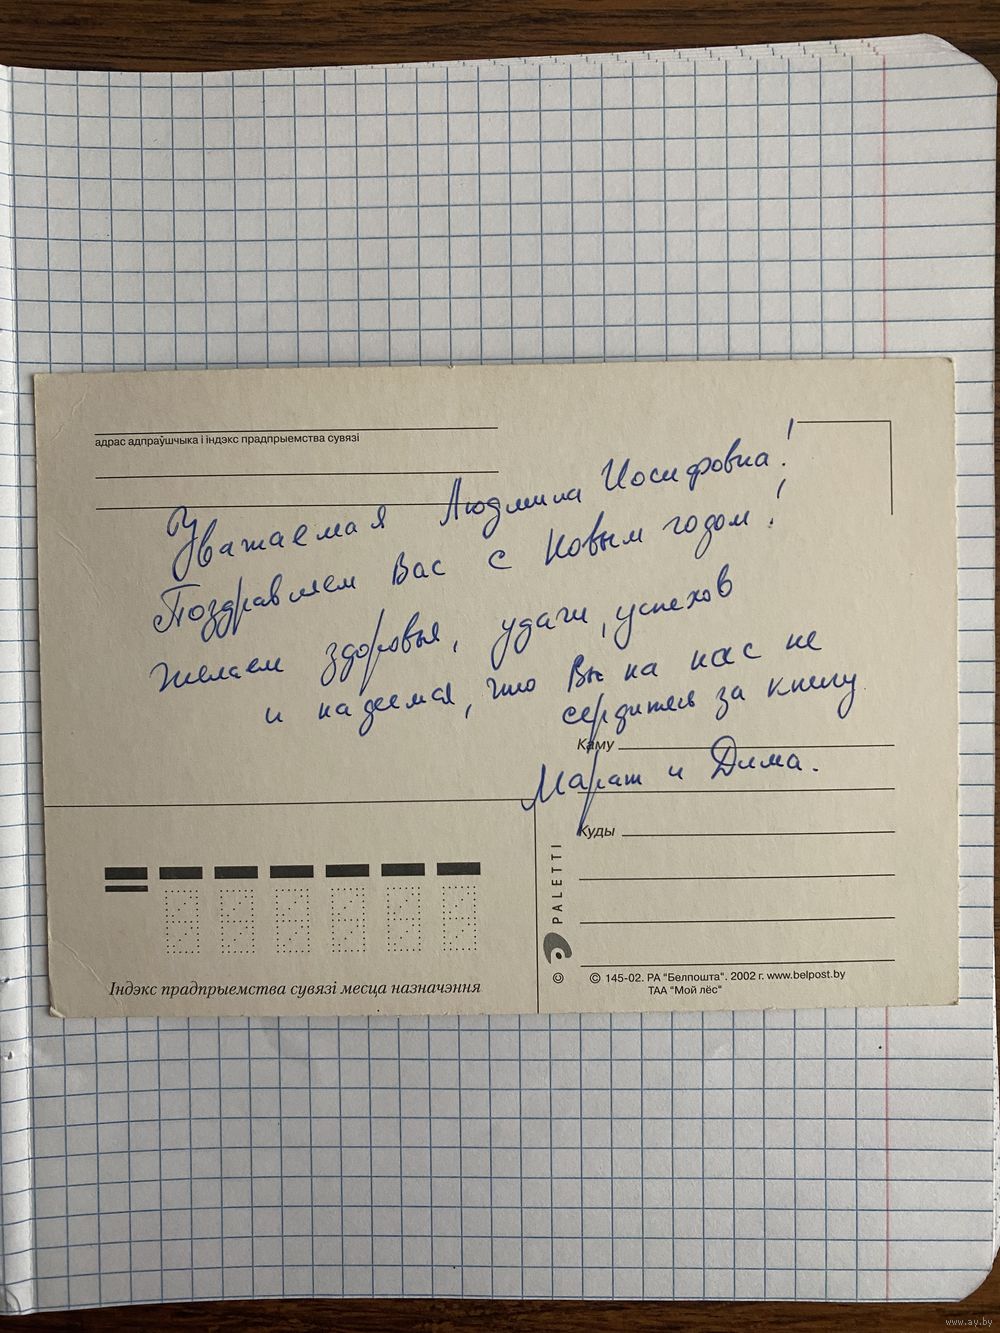 адрас адпраўшчыка і індэкс прадпрыемства сувязі
Уважаемая Людмила Иосифовна!
Поздравляем Вас с Новым годом!
Желаем здоровья, удачи, успехов
и надеемся, что Вы на нас не
сердитесь за книгу
Каму
Марат и Дима.
Куды
PALETTI
Індэкс прадпрыемства сувязі месца назначэння
© © 145-02. РА "Белпошта". 2002 г. www.belpost.by
ТАА "Мой лёс"
www.ay.by